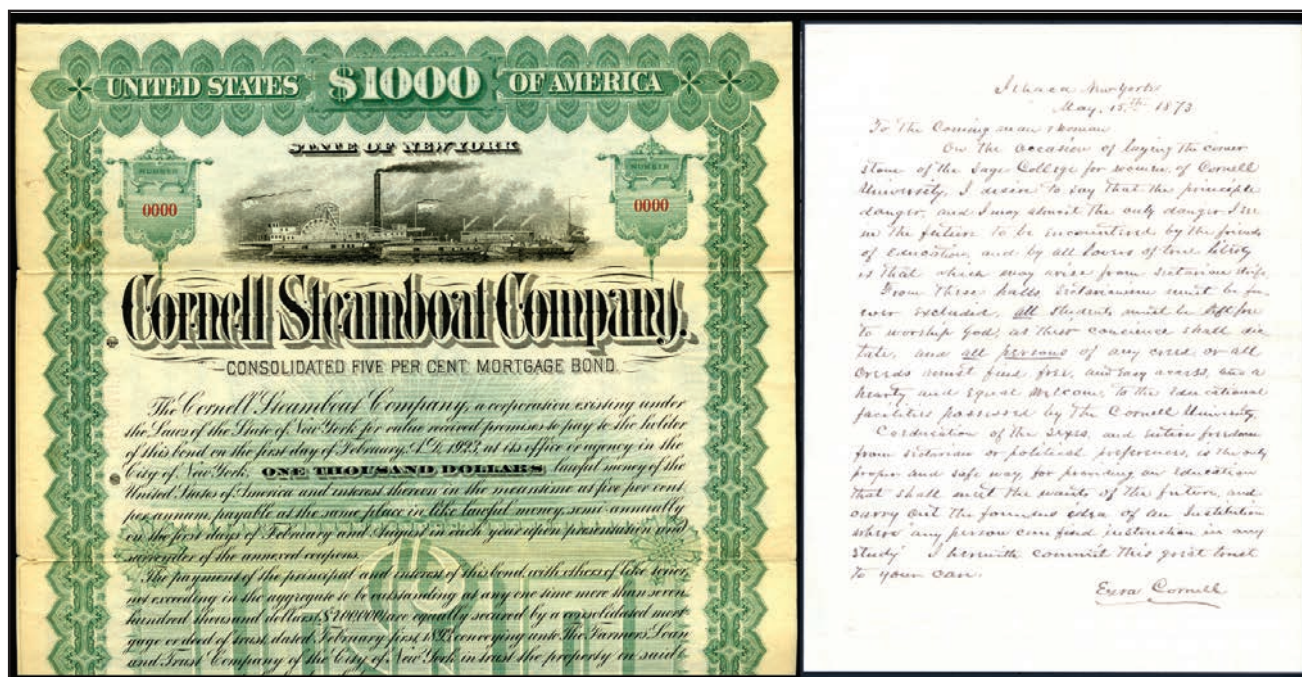 UNITED STATES $1000 OF AMERICA
STATE OF NEW YORK
NUMBER
0000
NUMBER
0000
Cornell Steamboat Company.
CONSOLIDATED FIVE PER CENT. MORTGAGE BOND.
The Cornell Steamboat Company, a corporation existing under
the Laws of the State of New York for value received promises to pay to the holder
of this bond on the first day of February, A.D. 1923, at its office or agency in the
City of New York, ONE THOUSAND DOLLARS lawful money of the
United States of America and interest thereon in the meantime at five per cent.
per annum, payable at the same place in like lawful money, semi-annually
on the first days of February and August in each year upon presentation and
surrender of the annexed coupons.
The payment of the principal and interest of this bond, with others of like tenor,
not exceeding in the aggregate to be outstanding at any one time more than seven
hundred thousand dollars, $700,000 are equally secured by a consolidated mort-
gage or deed of trust, dated February first, 1893 conveying unto The Farmers' Loan
and Trust Company of the City of New York in trust the property in said
Ithaca New York
May, 15th 1873
To the Coming man & woman
On the occasion of laying the corner
stone of the Sage College for women of Cornell
University, I desire to say that the principle
danger, and I may almost the only danger I see
in the future to be encountered by the friends
of education, and by all lovers of true liberty
is that which may arise from sectarian strife.
From these halls, sectarianism must be for-
ever excluded, all students must be left free
to worship God, as their concience shall dic-
tate, and all persons of any creed or all
creeds must find free, and easy access, and a
hearty and equal welcome, to the educational
facilities possessed by the Cornell University.
Coeducation of the sexes, and entire freedom
from sectarian or political preferences, is the only
proper and safe way, for providing an education
that shall meet the wants of the future, and
carry out the founders idea of an Institution
where any person can find instruction in any
study. I herewith commit this great trust
to your care.
Ezra Cornell